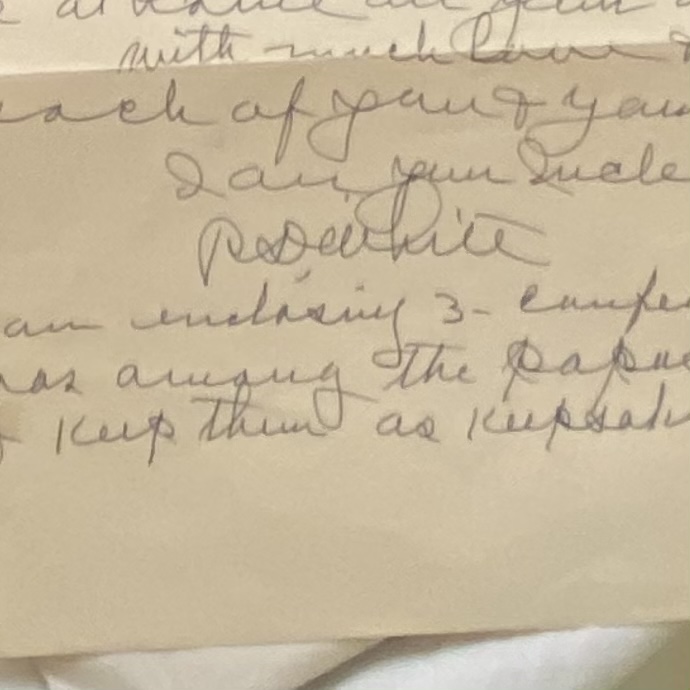 with much love &
each of you & you
I am your Uncle
White
am enclosing 3- confe
was among the papu
keep them as keepsak